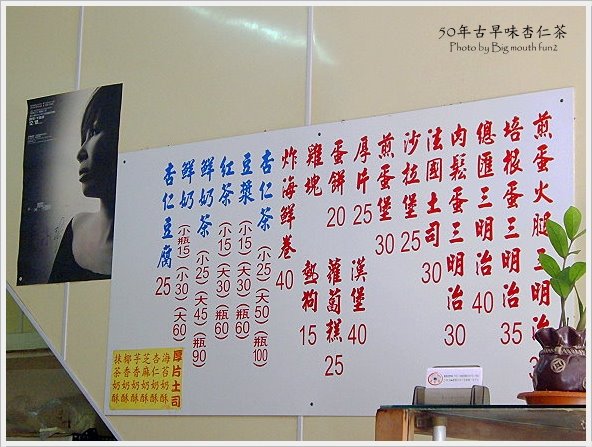 50年古早味杏仁茶
Photo by Big mouth fun2
煎蛋火腿三明治
培根蛋三明治 35
總匯三明治 40
肉鬆蛋三明治 30
法國土司 30
沙拉堡 25
煎蛋堡 30
厚片 25 漢堡 40
蛋餅 20 蘿蔔糕 25
雞塊 熱狗 15
炸海鮮卷 40
杏仁茶(小25)(大50)(瓶100)
豆漿(小15)(大30)(瓶60)
紅茶(小15)(大30)(瓶60)
鮮奶茶(小25)(大45)(瓶90)
鮮奶(小瓶15)(小30)(大60)
杏仁豆腐 25
厚片土司
海苔奶酥
杏仁奶酥
芝麻奶酥
芋香奶酥
椰香奶酥
抹茶奶酥